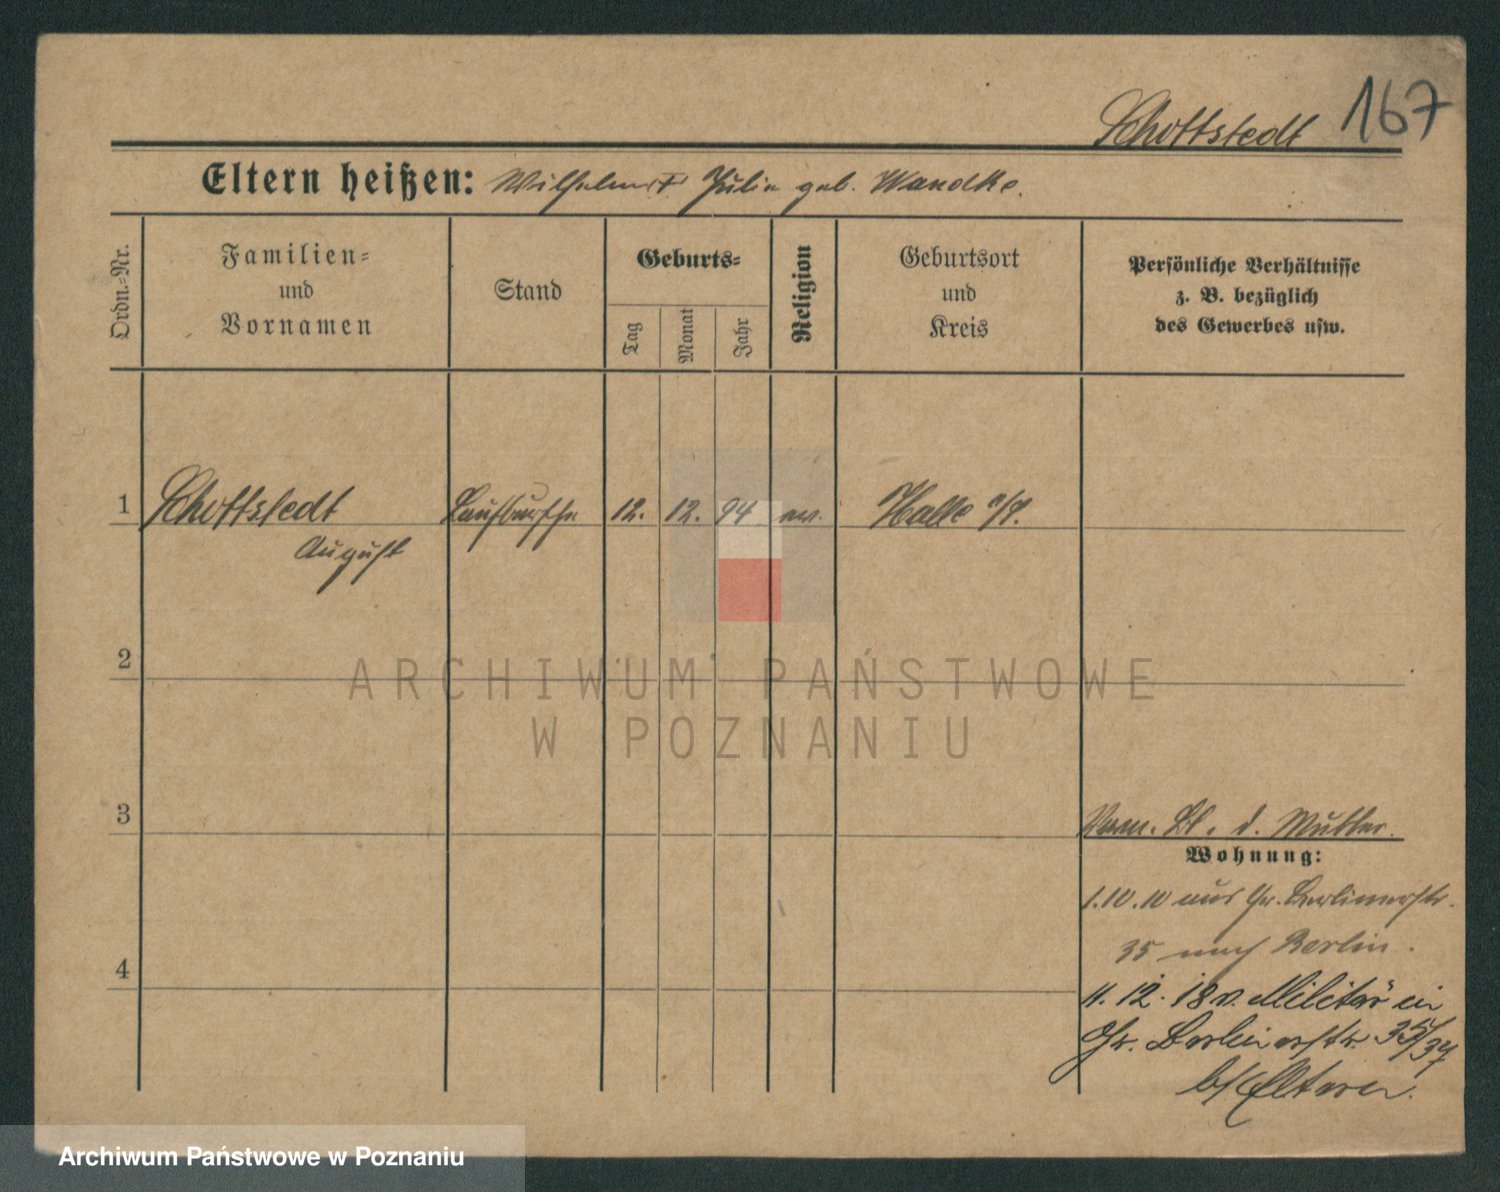 167
Schottstedt
Eltern heißen: Wilhelm u. Julie geb. Wandke.
Ordn.-Nr.
Familien-
und
Vornamen
Stand
Geburts-
Tag
Monat
Jahr
Religion
Geburtsort
und
Kreis
Persönliche Verhältnisse
z. B. bezüglich
des Gewerbes usw.
1 Schottstedt Laufbursche 12. 12. 94 ev. Halle a/S.
August
2
ARCHIWUM PAŃSTWOWE
W POZNANIU
3
Bl. d. Mutter.
Wohnung:
1.10.10 aus Gr. Berlinerstr.
35 nach Berlin.
11.12.18 v. Militär in
4
Gr. Berlinerstr. 35/37
b/Eltern.
Archiwum Państwowe w Poznaniu